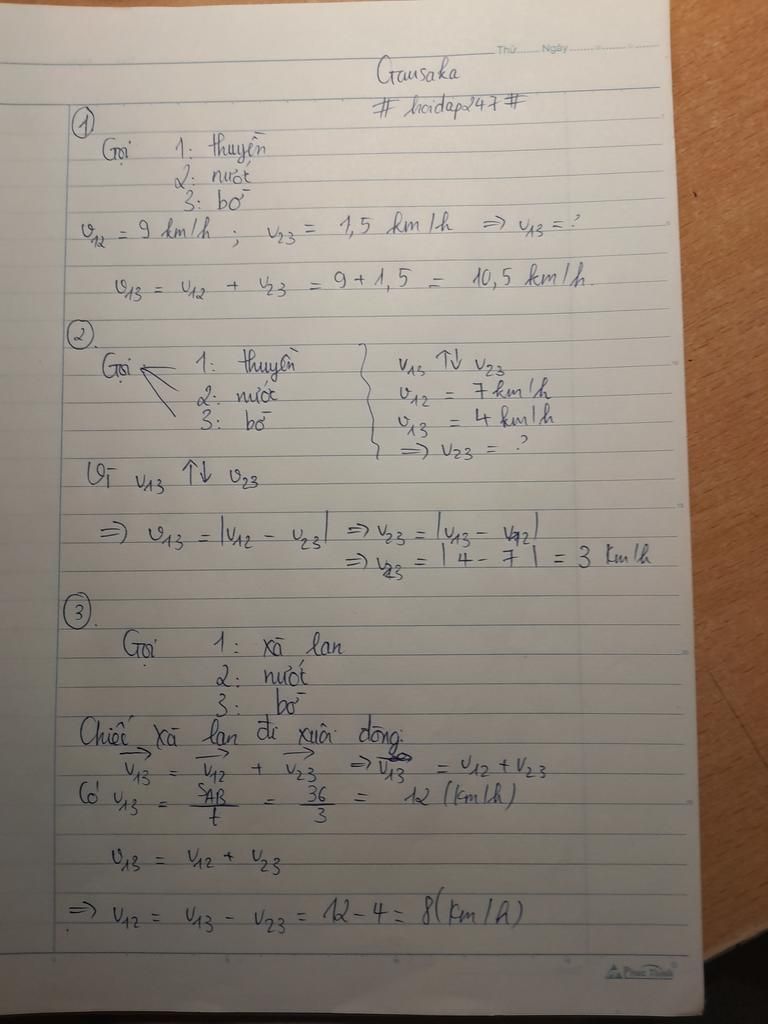 Thứ...... Ngày..................
Gausaka
# hoidap247 #
①
Gọi 1: thuyền
2: nước
3: bờ
v₁₂ = 9 km/h ; v₂₃ = 1,5 km/h ⇒ v₁₃ = ?
v₁₃ = v₁₂ + v₂₃ = 9 + 1,5 = 10,5 km/h.
②.
Gọi 1: thuyền v₁₃ ↑↓ v₂₃
2: nước v₁₂ = 7 km/h
3: bờ v₁₃ = 4 km/h
⇒ v₂₃ = ?
Vì v₁₃ ↑↓ v₂₃
⇒ v₁₃ = |v₁₂ - v₂₃| ⇒ v₂₃ = |v₁₃ - v₁₂|
⇒ v₂₃ = |4 - 7| = 3 km/h
③.
Gọi 1: xà lan
2: nước
3: bờ
Chiếc xà lan đi xuôi dòng:
v₁₃→ = v₁₂→ + v₂₃→ ⇒ v₁₃ = v₁₂ + v₂₃
Có v₁₃ = S_AB/t = 36/3 = 12 (km/h)
v₁₃ = v₁₂ + v₂₃
⇒ v₁₂ = v₁₃ - v₂₃ = 12 - 4 = 8 (km/h)
Phúc Thịnh